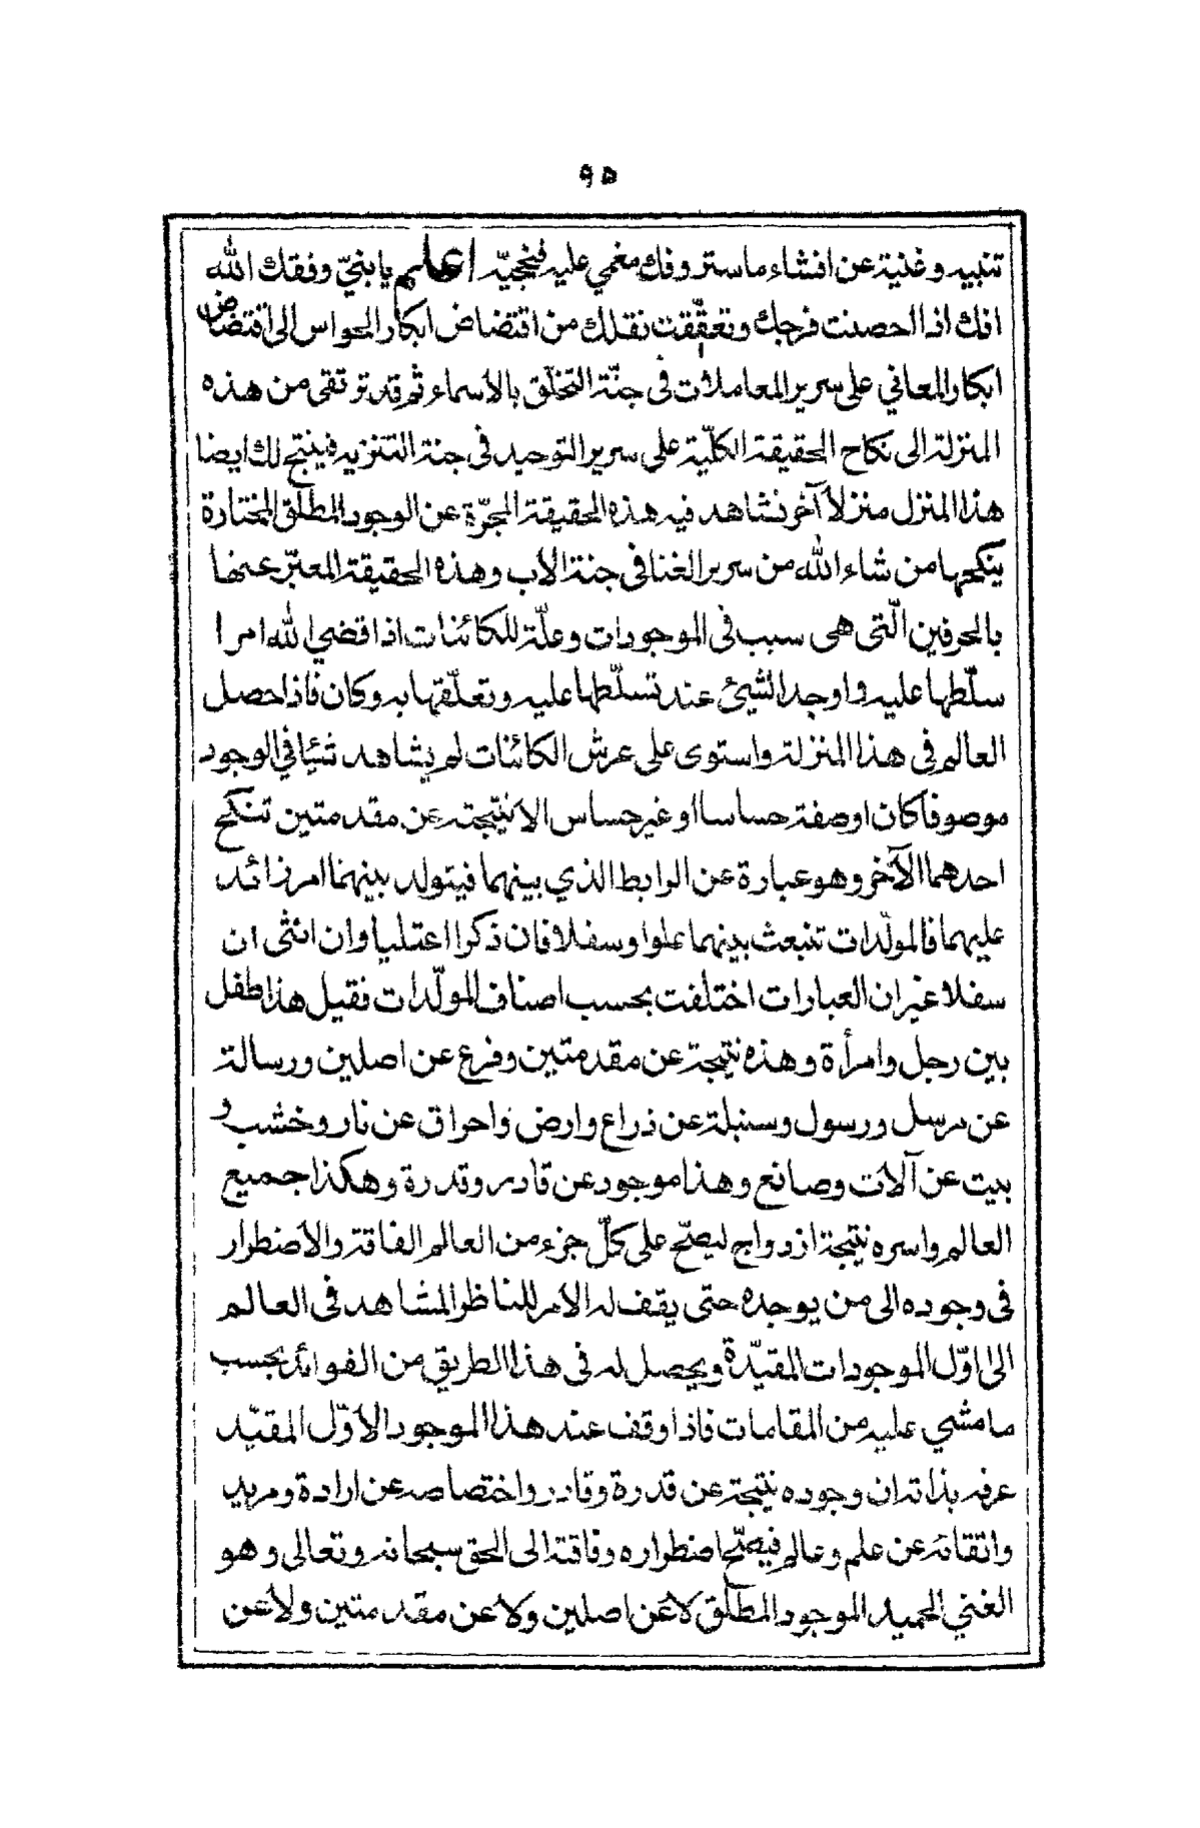 ٩٥
تنبيه وغنية عن افشاء ماستر وفك مغمي عليه فنجيّه اعلم يا بنيّ وفقك الله
انك اذا احصنت فرجك وتعققت نقلك من اقتضاض ابكار الحواس الى اقتضاض
ابكار المعاني على سرير المعاملات في جنّة التخلّق بالاسماء ثم قد ترتقى من هذه
المنزلة الى نكاح الحقيقة الكلّية على سرير التوحيد في جنة التنزيه فينتج لك ايضا
هذا المنزل منزلا آخر نشاهد فيه هذه الحقيقة المجرّة عن الوجود المطلق المختارة
ينكحها من شاء الله من سرير الغنا في جنة الاب وهذه الحقيقة المعبّر عنها
بالحرفين الّتى هى سبب فى الموجودات وعلّة للكائنات اذا قضي الله امرا
سلّطها عليه واوجد الشيئ عند تسلّطها عليه وتعلّقها به وكان فاذا حصل
العالم فى هذا المنزلة واستوى على عرش الكائنات لم يشاهد شيئا في الوجود
موصوفا كان او صفة حساسا او غير حساس الا نتيجة عن مقدمتين تنكح
احدهما الآخر وهو عبارة عن الرابط الذي بينهما فيتولد بينهما امر زائد
عليهما فالمولّدات تنبعث بينهما علوا وسفلا فان ذكرا اعتليا وان انثى ان
سفلا غير ان العبارات اختلفت بحسب اصناف المولّدات فقيل هذا طفل
بين رجل وامرأة وهذه نتيجة عن مقدمتين وفرع عن اصلين ورسالة
عن مرسل ورسول وسنبلة عن ذراع وارض واحراق عن نار وخشب و
بيت عن آلات وصانع وهذا موجود عن قادر وقدرة وهكذا جميع
العالم واسره نتيجة ازدواج ليصحّ على كلّ جزء من العالم الفاقة والاضطرار
فى وجوده الى من يوجده حتى يقف له الامر للناظر المشاهد فى العالم
الى اوّل الموجودات المقيّدة ويحصل له فى هذا الطريق من الفوائد بحسب
ما مشي عليه من المقامات فاذا وقف عند هذا الموجود الاوّل المقيّد
عرفه بذاته ان وجوده نتيجة عن قدرة وقادر واختصاصه عن ارادة ومريد
واتقانه عن علم وعالم فيصحّ اضطراره وفاقته الى الحق سبحانه وتعالى وهو
الغني الحميد الموجود المطلق لا عن اصلين ولا عن مقدمتين ولا عن